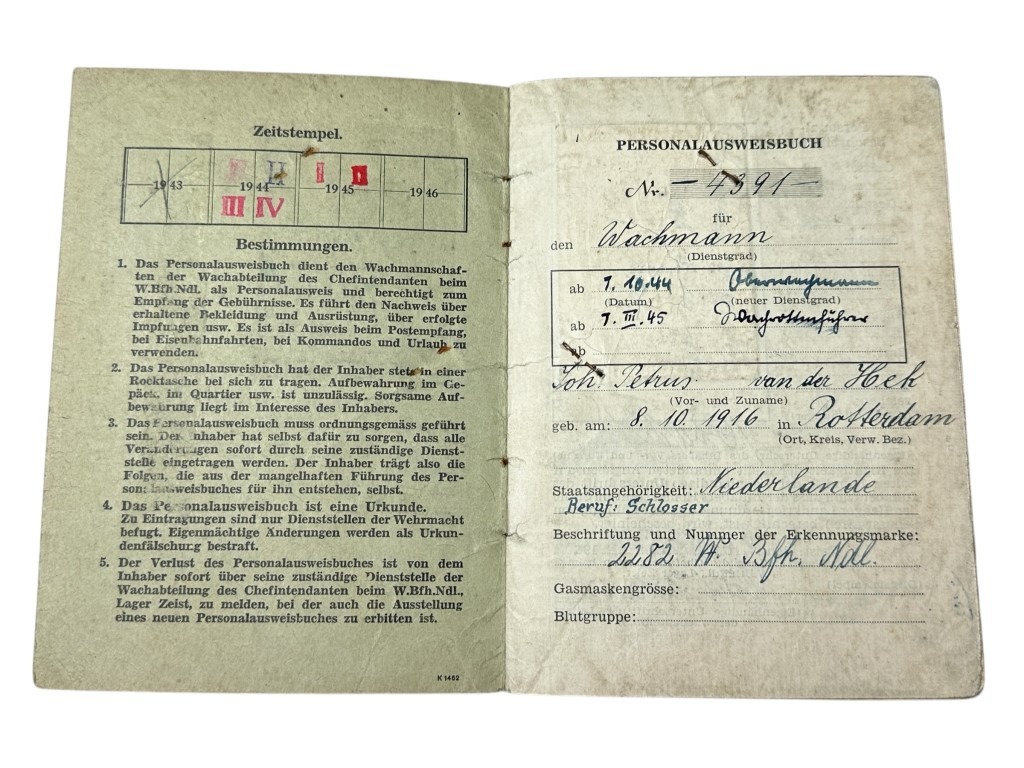 Zeitstempel.
1943 1944 1945 1946
I II I II
III IV
Bestimmungen.
1. Das Personalausweisbuch dient den Wachmannschaf-
ten der Wachabteilung des Chefintendanten beim
W.Bfh.Ndl. als Personalausweis und berechtigt zum
Empfang der Gebührnisse. Es führt den Nachweis über
erhaltene Bekleidung und Ausrüstung, über erfolgte
Impfungen usw. Es ist als Ausweis beim Postempfang,
bei Eisenbahnfahrten, bei Kommandos und Urlaub zu
verwenden.
2. Das Personalausweisbuch hat der Inhaber stets in einer
Rocktasche bei sich zu tragen. Aufbewahrung im Ge-
päck, im Quartier usw. ist unzulässig. Sorgsame Auf-
bewahrung liegt im Interesse des Inhabers.
3. Das Personalausweisbuch muss ordnungsgemäss geführt
sein. Der Inhaber hat selbst dafür zu sorgen, dass alle
Veränderungen sofort durch seine zuständige Dienst-
stelle eingetragen werden. Der Inhaber trägt also die
Folgen, die aus der mangelhaften Führung des Per-
sonalausweisbuches für ihn entstehen, selbst.
4. Das Personalausweisbuch ist eine Urkunde.
Zu Eintragungen sind nur Dienststellen der Wehrmacht
befugt. Eigenmächtige Änderungen werden als Urkun-
denfälschung bestraft.
5. Der Verlust des Personalausweisbuches ist von dem
Inhaber sofort über seine zuständige Dienststelle der
Wachabteilung des Chefintendanten beim W.Bfh.Ndl.,
Lager Zeist, zu melden, bei der auch die Ausstellung
eines neuen Personalausweisbuches zu erbitten ist.
K 1462
PERSONALAUSWEISBUCH
Nr. — 4391 —
für
den Wachmann
(Dienstgrad)
ab 1.10.44 Oberwachmann
(Datum) (neuer Dienstgrad)
ab 1.III.45 Wachrottenführer
ab
Joh. Petrus van der Hek
(Vor- und Zuname)
geb. am: 8. 10. 1916 in Rotterdam
(Ort, Kreis, Verw. Bez.)
Staatsangehörigkeit: Niederlande
Beruf: Schlosser
Beschriftung und Nummer der Erkennungsmarke:
2282 W. Bfh. Ndl.
Gasmaskengrösse:
Blutgruppe: